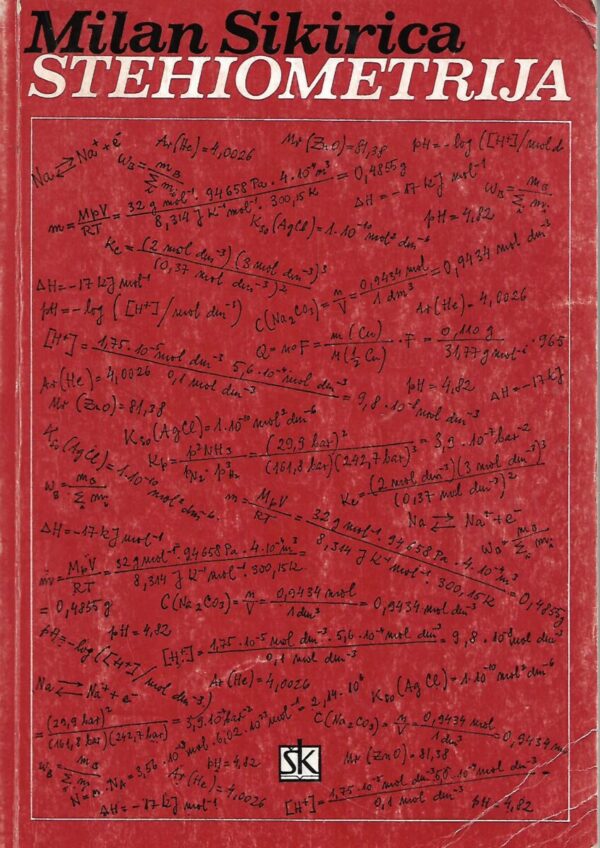 Milan Sikirica
STEHIOMETRIJA
Na ⇄ Na⁺ + e⁻
w_B = m_B / Σ m_i
Ar(He) = 4,0026
Mr(ZnO) = 81,38
pH = -log ([H⁺]/mol d
m = MpV / RT = 32 g mol⁻¹ · 94658 Pa · 4 · 10⁻⁴ m³ / 8,314 J K⁻¹ mol⁻¹ · 300,15 K = 0,4855 g
ΔH = -17 kJ mol⁻¹
w_B = m_B / Σ m_i
K_so(AgCl) = 1 · 10⁻¹⁰ mol² dm⁻⁶
pH = 4,82
Kc = (2 mol dm⁻³)(3 mol dm⁻³)³ / (0,37 mol dm⁻³)²
ΔH = -17 kJ mol⁻¹
c(Na₂CO₃) = n / V = 0,9434 mol / 1 dm³ = 0,9434 mol dm⁻³
pH = -log ([H⁺]/mol dm⁻³)
Ar(He) = 4,0026
[H⁺] = 1,75 · 10⁻⁵ mol dm⁻³ · 5,6 · 10⁻⁴ mol dm⁻³ / 0,1 mol dm⁻³ = 9,8 · 10⁻⁸ mol dm⁻³
Q = n · F = m(Cu) / M(½ Cu) · F = 0,110 g / 31,77 g mol⁻¹ · 965
Ar(He) = 4,0026
pH = 4,82
ΔH = -17 kJ
Mr(ZnO) = 81,38
K_so(AgCl) = 1 · 10⁻¹⁰ mol² dm⁻⁶
K_so(AgCl) = 1 · 10⁻¹⁰ mol² dm⁻⁶
Kp = p²NH₃ / pN₂ · p³H₂ = (29,9 bar)² / (161,8 bar)(242,7 bar)³ = 3,9 · 10⁻⁷ bar⁻²
w_B = m_B / Σ m_i
Kc = (2 mol dm⁻³)(3 mol dm⁻³)³ / (0,37 mol dm⁻³)²
m = MpV / RT = 32 g mol⁻¹ · 94658 Pa · 4 · 10⁻⁴ m³ / 8,314 J K⁻¹ mol⁻¹ · 300,15 K = 0,4855 g
Na ⇄ Na⁺ + e⁻
ΔH = -17 kJ mol⁻¹
w_B = m_B / Σ m_i
m = MpV / RT = 32 g mol⁻¹ · 94658 Pa · 4 · 10⁻⁴ m³ / 8,314 J K⁻¹ mol⁻¹ · 300,15 K
= 0,4855 g
c(Na₂CO₃) = n / V = 0,9434 mol / 1 dm³ = 0,9434 mol dm⁻³
pH = 4,82
pH = -log ([H⁺]/mol dm⁻³)
[H⁺] = 1,75 · 10⁻⁵ mol dm⁻³ · 5,6 · 10⁻⁴ mol dm⁻³ / 0,1 mol dm⁻³ = 9,8 · 10⁻⁸ mol dm⁻³
Na ⇄ Na⁺ + e⁻
Ar(He) = 4,0026
K_so(AgCl) = 1 · 10⁻¹⁰ mol² dm⁻⁶
= (29,9 bar)² / (161,8 bar)(242,7 bar)³ = 3,9 · 10⁻⁷ bar⁻²
c(Na₂CO₃) = n / V = 0,9434 mol / 1 dm³ = 0,9434 m
w_B = m_B / Σ m_i
N = n · N_A = 3,56 · 10⁻¹⁸ mol · 6,02 · 10²³ mol⁻¹ = 2,14 · 10⁶
pH = 4,82
šk
Mr(ZnO) = 81,38
Ar(He) = 4,0026
ΔH = -17 kJ mol⁻¹
[H⁺] = 1,75 · 10⁻⁵ mol dm⁻³ · 5,6 · 10⁻⁴ mol dm⁻³ / 0,1 mol dm⁻³ =
pH = 4,82